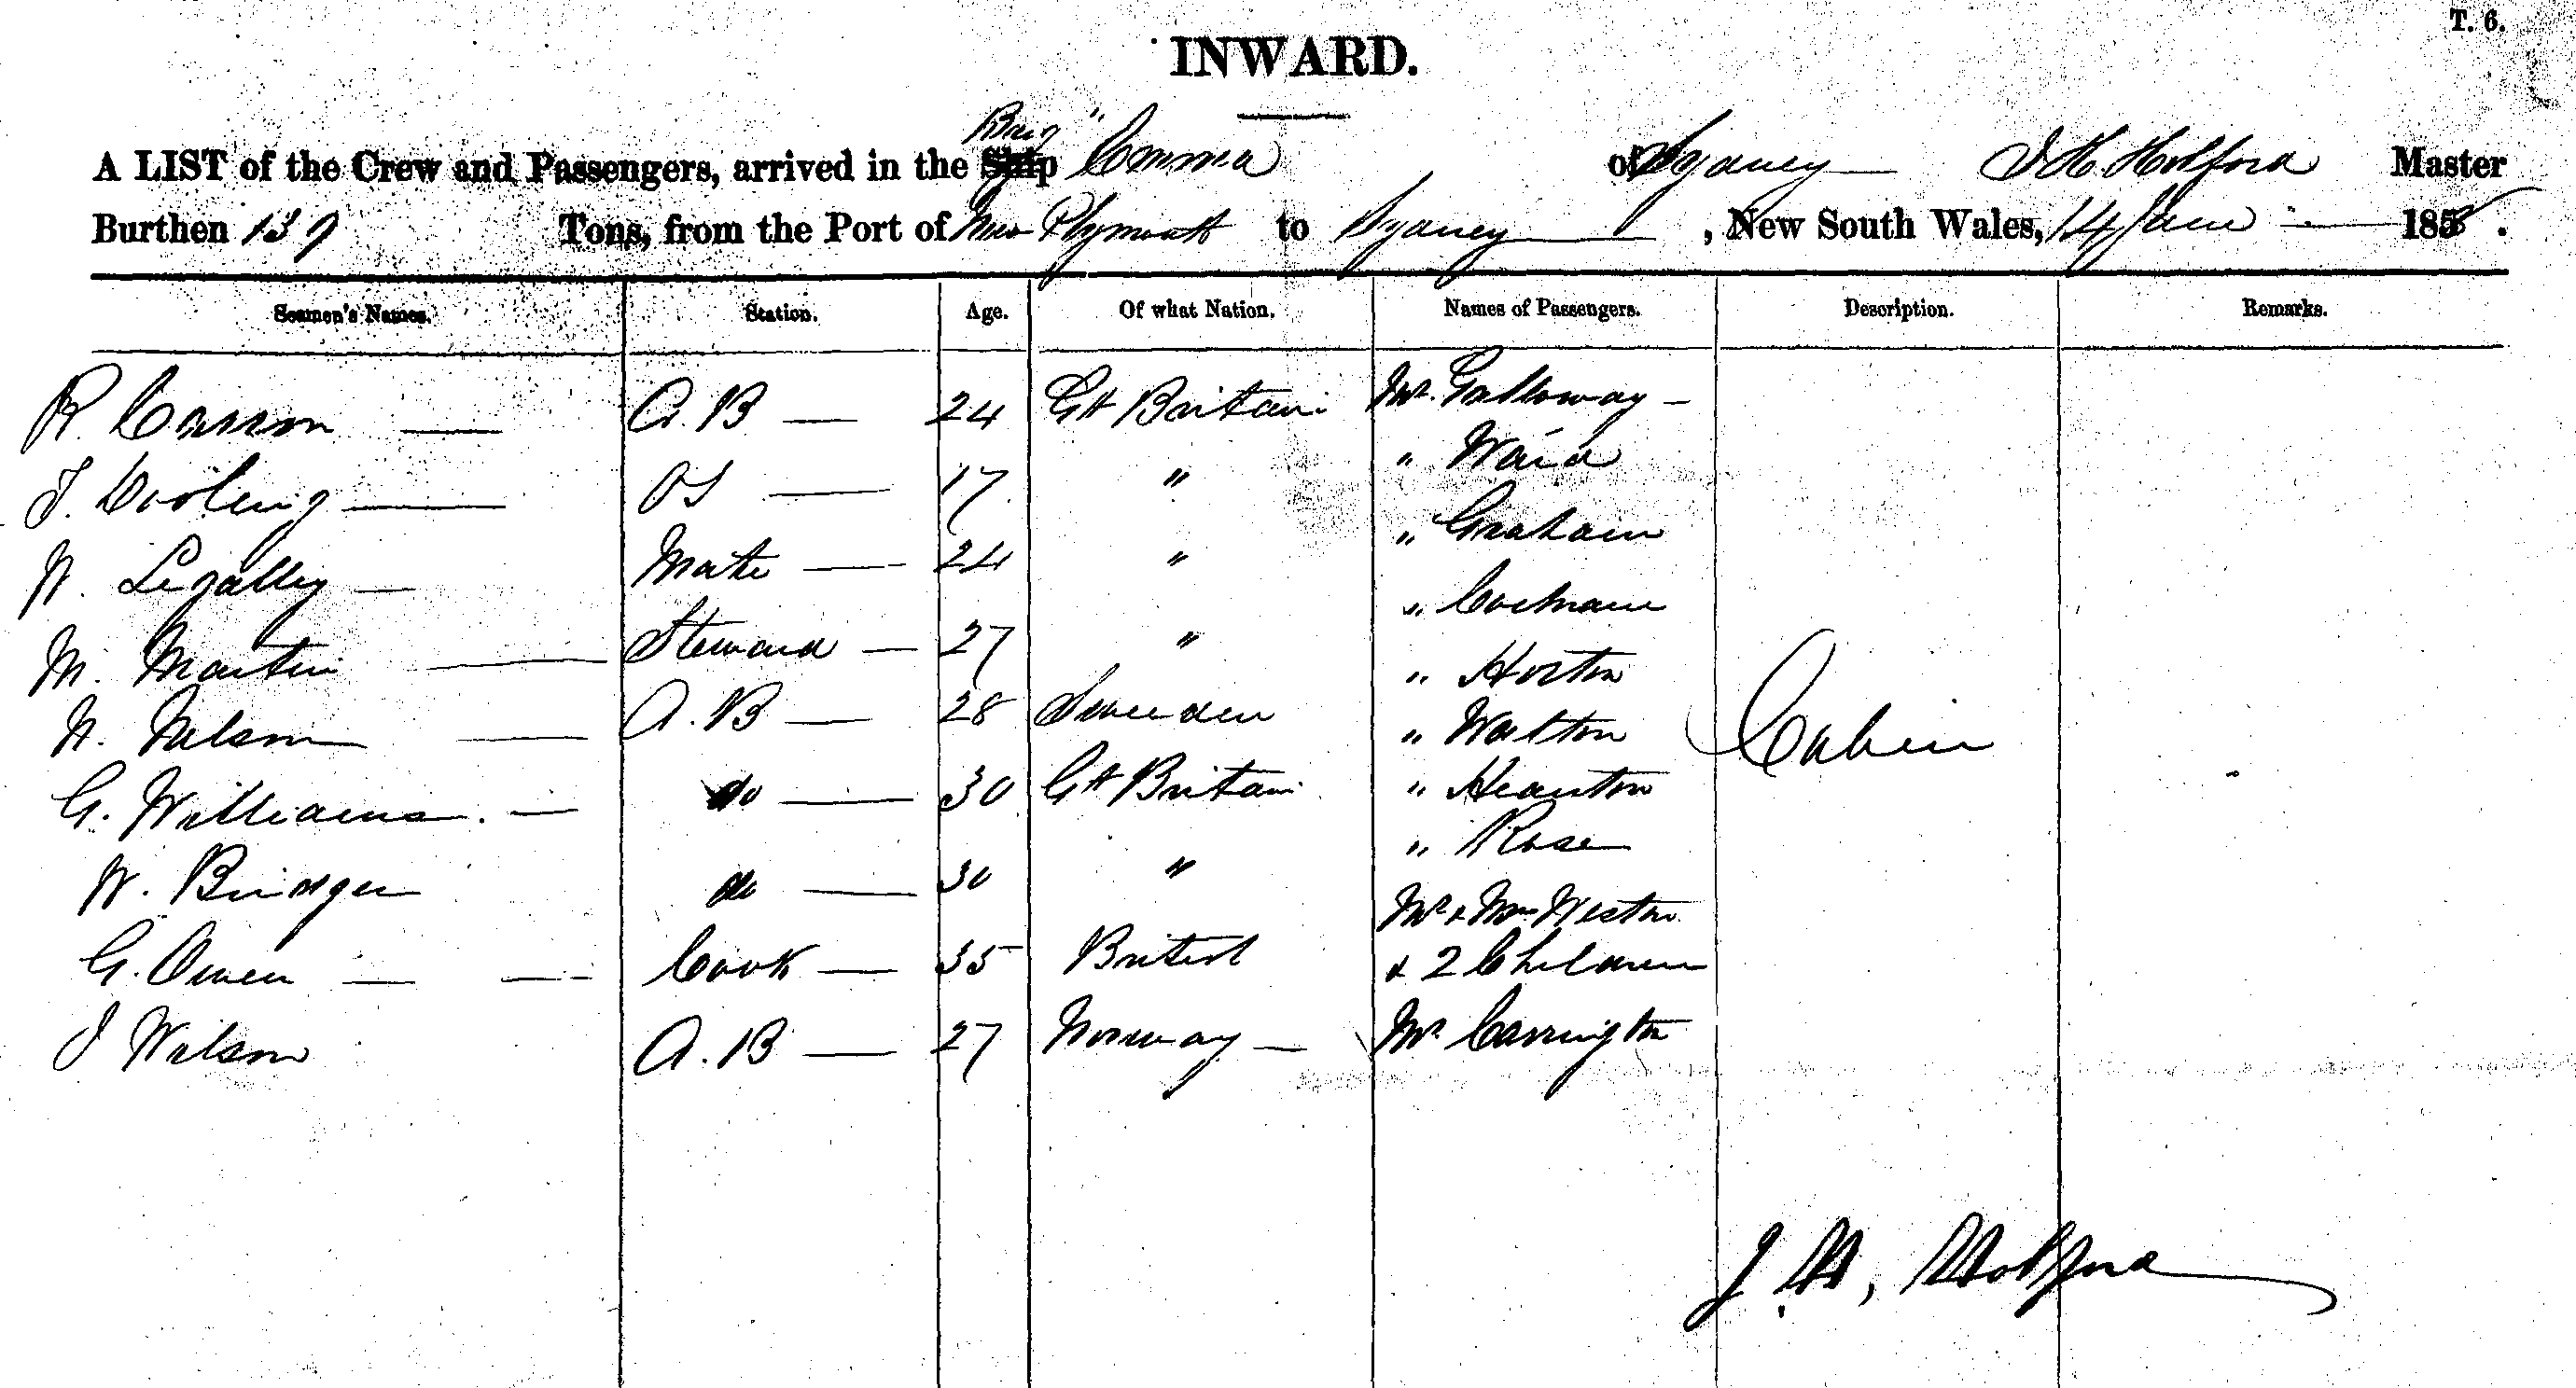 T. 6.
INWARD.
Brig "
A LIST of the Crew and Passengers, arrived in the Ship Emma of Sydney J H Holford Master
Burthen 139 Tons, from the Port of New Plymouth to Sydney , New South Wales, 14 June 1858.
Seamen's Names. Station. Age. Of what Nation. Names of Passengers. Description. Remarks.
R. Carson A.B 24 Gt Britain Mr. Galloway
J. Dooling OS 17 " " Ward
W. Legalley Mate 24 " " Graham
" Cochrane
M. Martin Steward 27 " " Horton
N. Nelson A.B 28 Sweeden " Walton Cabin
G. Williams. do 30 Gt Britain " Heanton
" Rose
W. Bridger do 30 " Mr & Mrs Weston
G. Owen Cook 35 British & 2 Children
J Wilson A.B 27 Norway Mr. Carrington
J. H, Holford